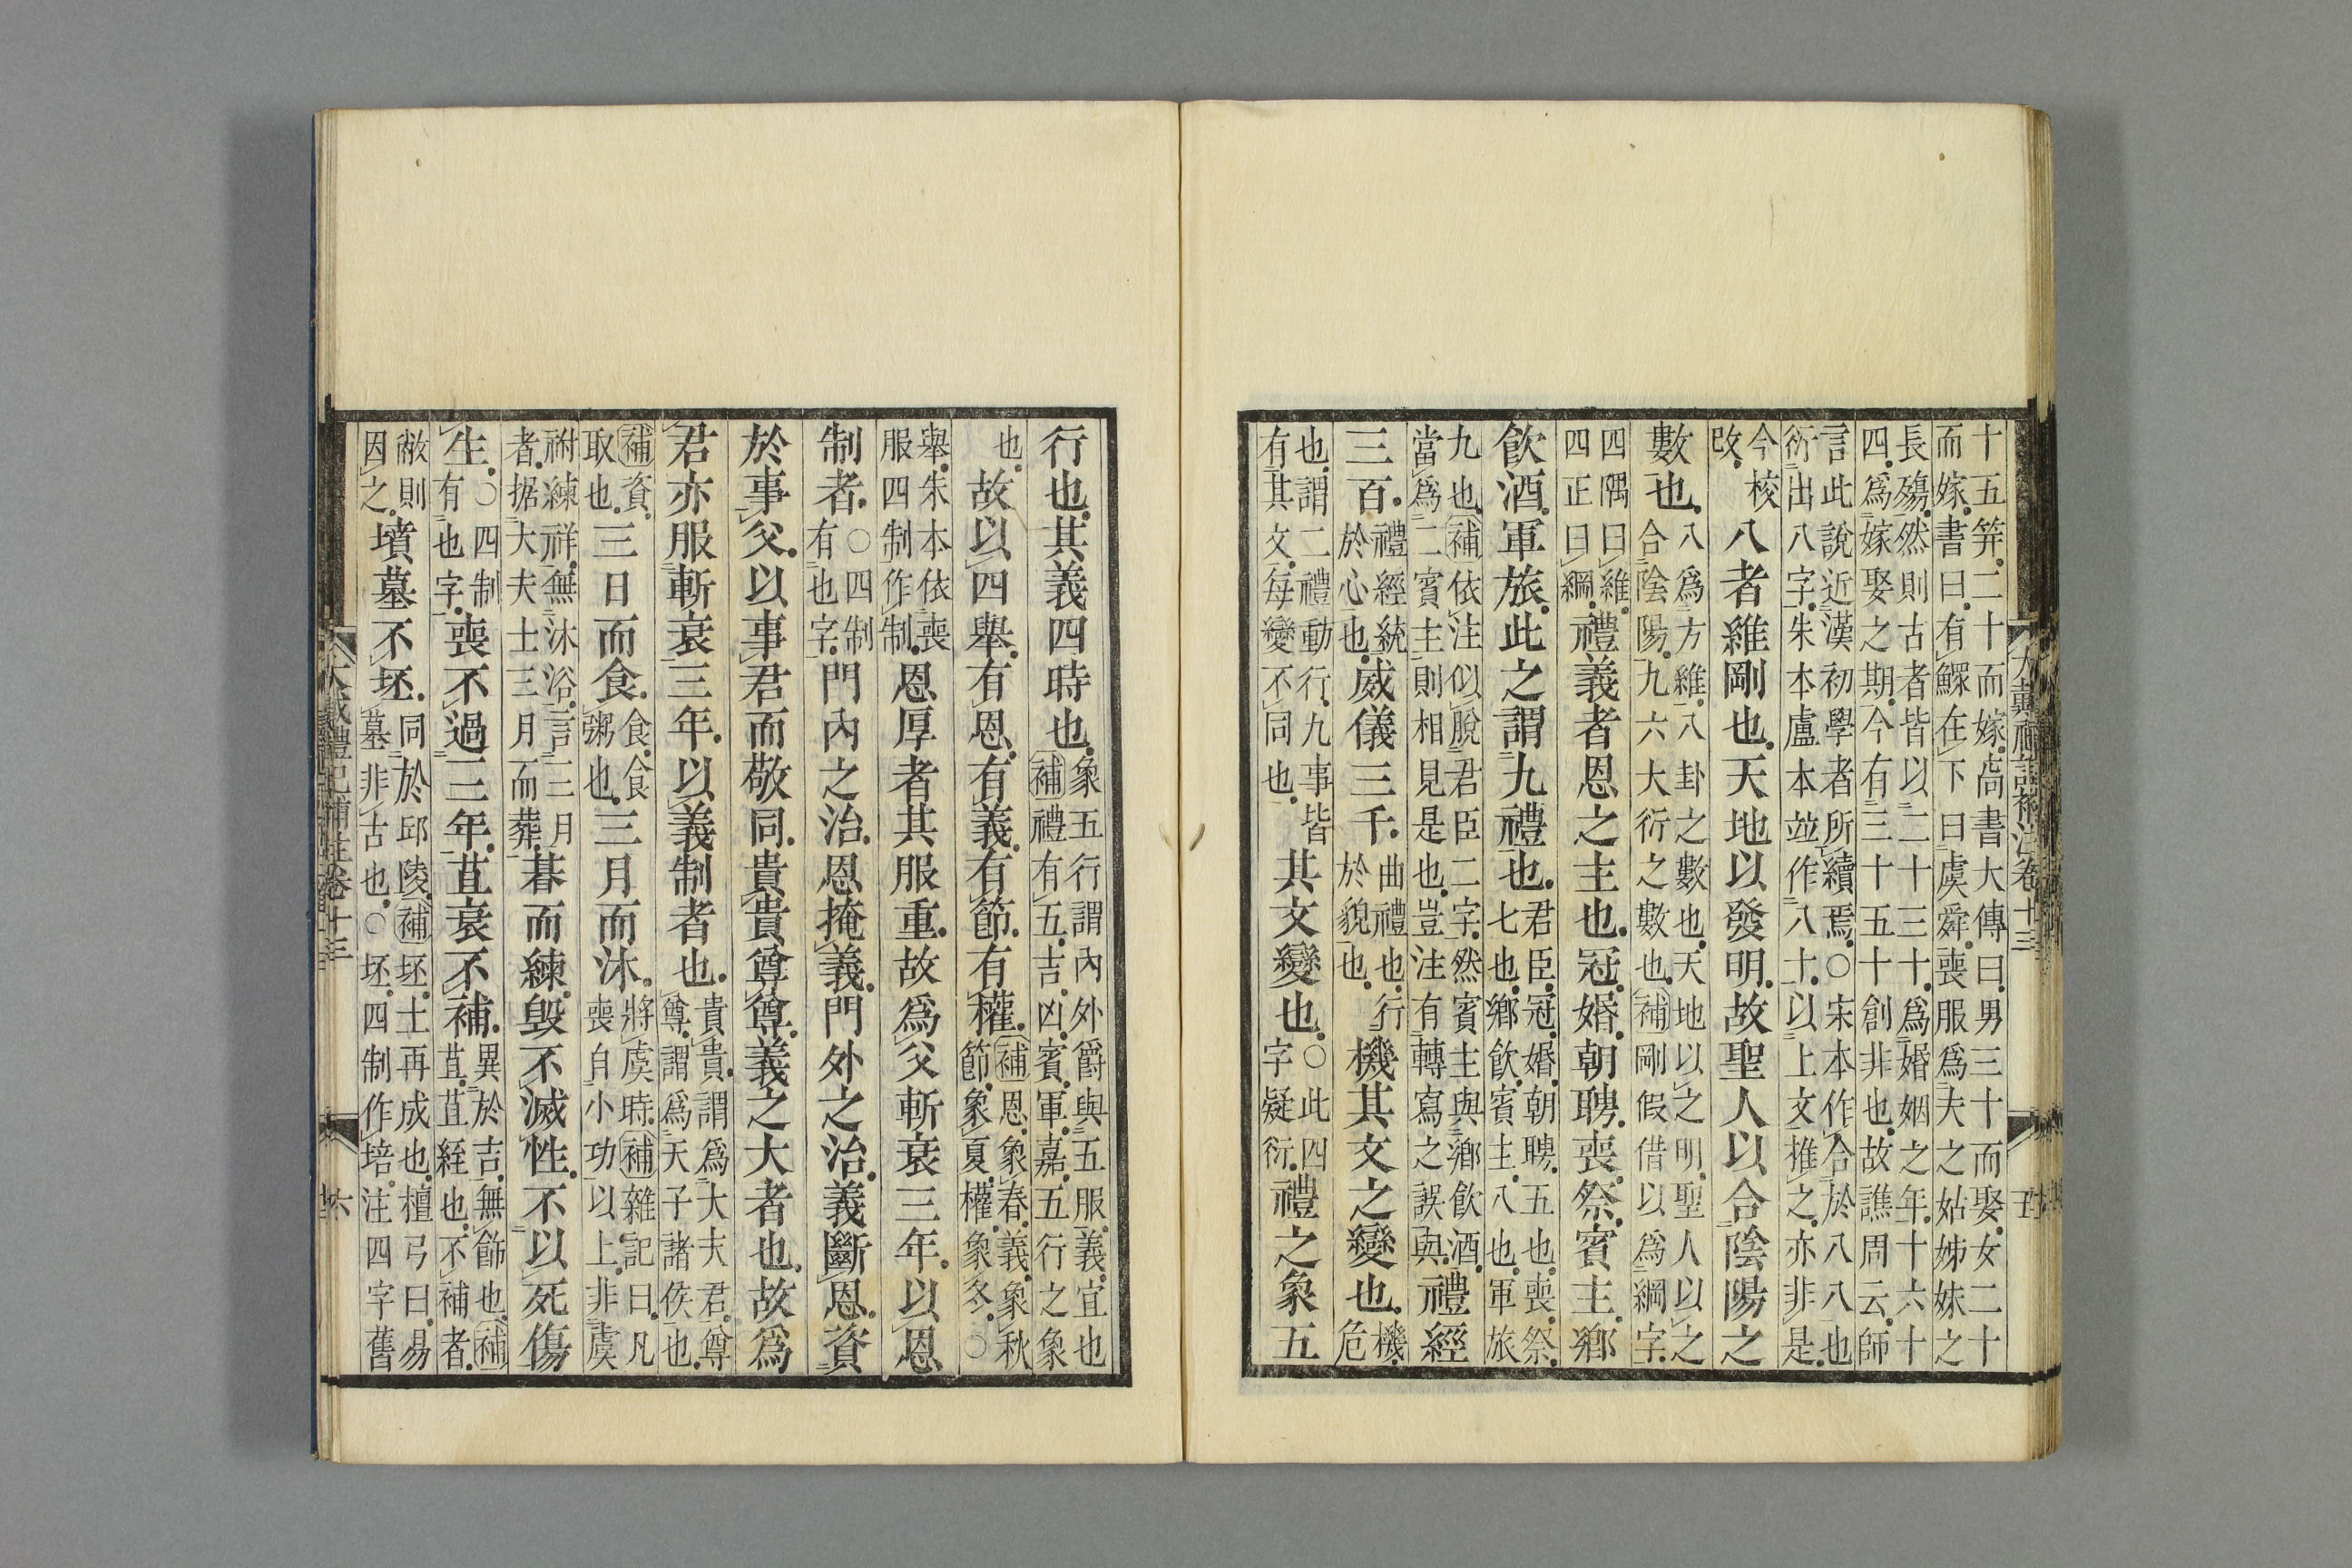 大戴禮記補注卷十三
五
十五笄二十而嫁尚書大傳曰男三十而娶女二十
而嫁書曰有鰥在下曰虞舜喪服爲夫之姑姊妹之
長殤然則古者皆以二十三十爲婚姻之年十六十
四爲嫁娶之期今有三十五十創非也故譙周云師
言此說近漢初學者所續焉○宋本作合於八八也
衍出八字朱本盧本竝作八十以上文推之亦非是
今校
改
八者維剛也天地以發明故聖人以合陰陽之
數也
八爲方維八卦之數也天地以之明聖人以之
合陰陽九六大衍之數也補剛假借以爲綱字
四隅曰維
四正曰綱
禮義者恩之主也冠婚朝聘喪祭賓主鄉
飲酒軍旅此之謂九禮也
君臣冠婚朝聘五也喪祭
七也鄉飲賓主八也軍旅
九也補依注似脫君臣二字然賓主與鄉飲酒
當爲二賓主則相見是也豈注有轉寫之誤與
禮經
三百
禮經統
於心也
威儀三千
曲禮也行
於貌也
機其文之變也
機
危
也謂二禮動行九事皆
有其文每變不同也
其文變也
○此四
字疑衍
禮之象五
行也其義四時也
象五行謂內外爵與五服義宜也
補禮有五吉凶賓軍嘉五行之象
也
故以四舉有恩有義有節有權
補恩象春義象秋
節象夏權象冬○
舉朱本依喪
服四制作制
恩厚者其服重故爲父斬衰三年以恩
制者
○四制
有也字
門內之治恩掩義門外之治義斷恩資
於事父以事君而敬同貴貴尊尊義之大者也故爲
君亦服斬衰三年以義制者也
貴貴謂爲大夫君尊
尊謂爲天子諸侯也
補資
取也
三日而食
食食
粥也
三月而沐
將虞時補雜記曰凡
喪自小功以上非虞
祔練祥無沐浴言三月
者据大夫士三月而葬
朞而練毀不滅性不以死傷
生
○四制
有也字
喪不過三年苴衰不補
異於吉無飾也補
苴苴絰也不補者
敝則
因之
墳墓不坯
同於邱陵補坯土再成也檀弓曰易
墓非古也○坯四制作培注四字舊
大戴禮記補注卷十三
六